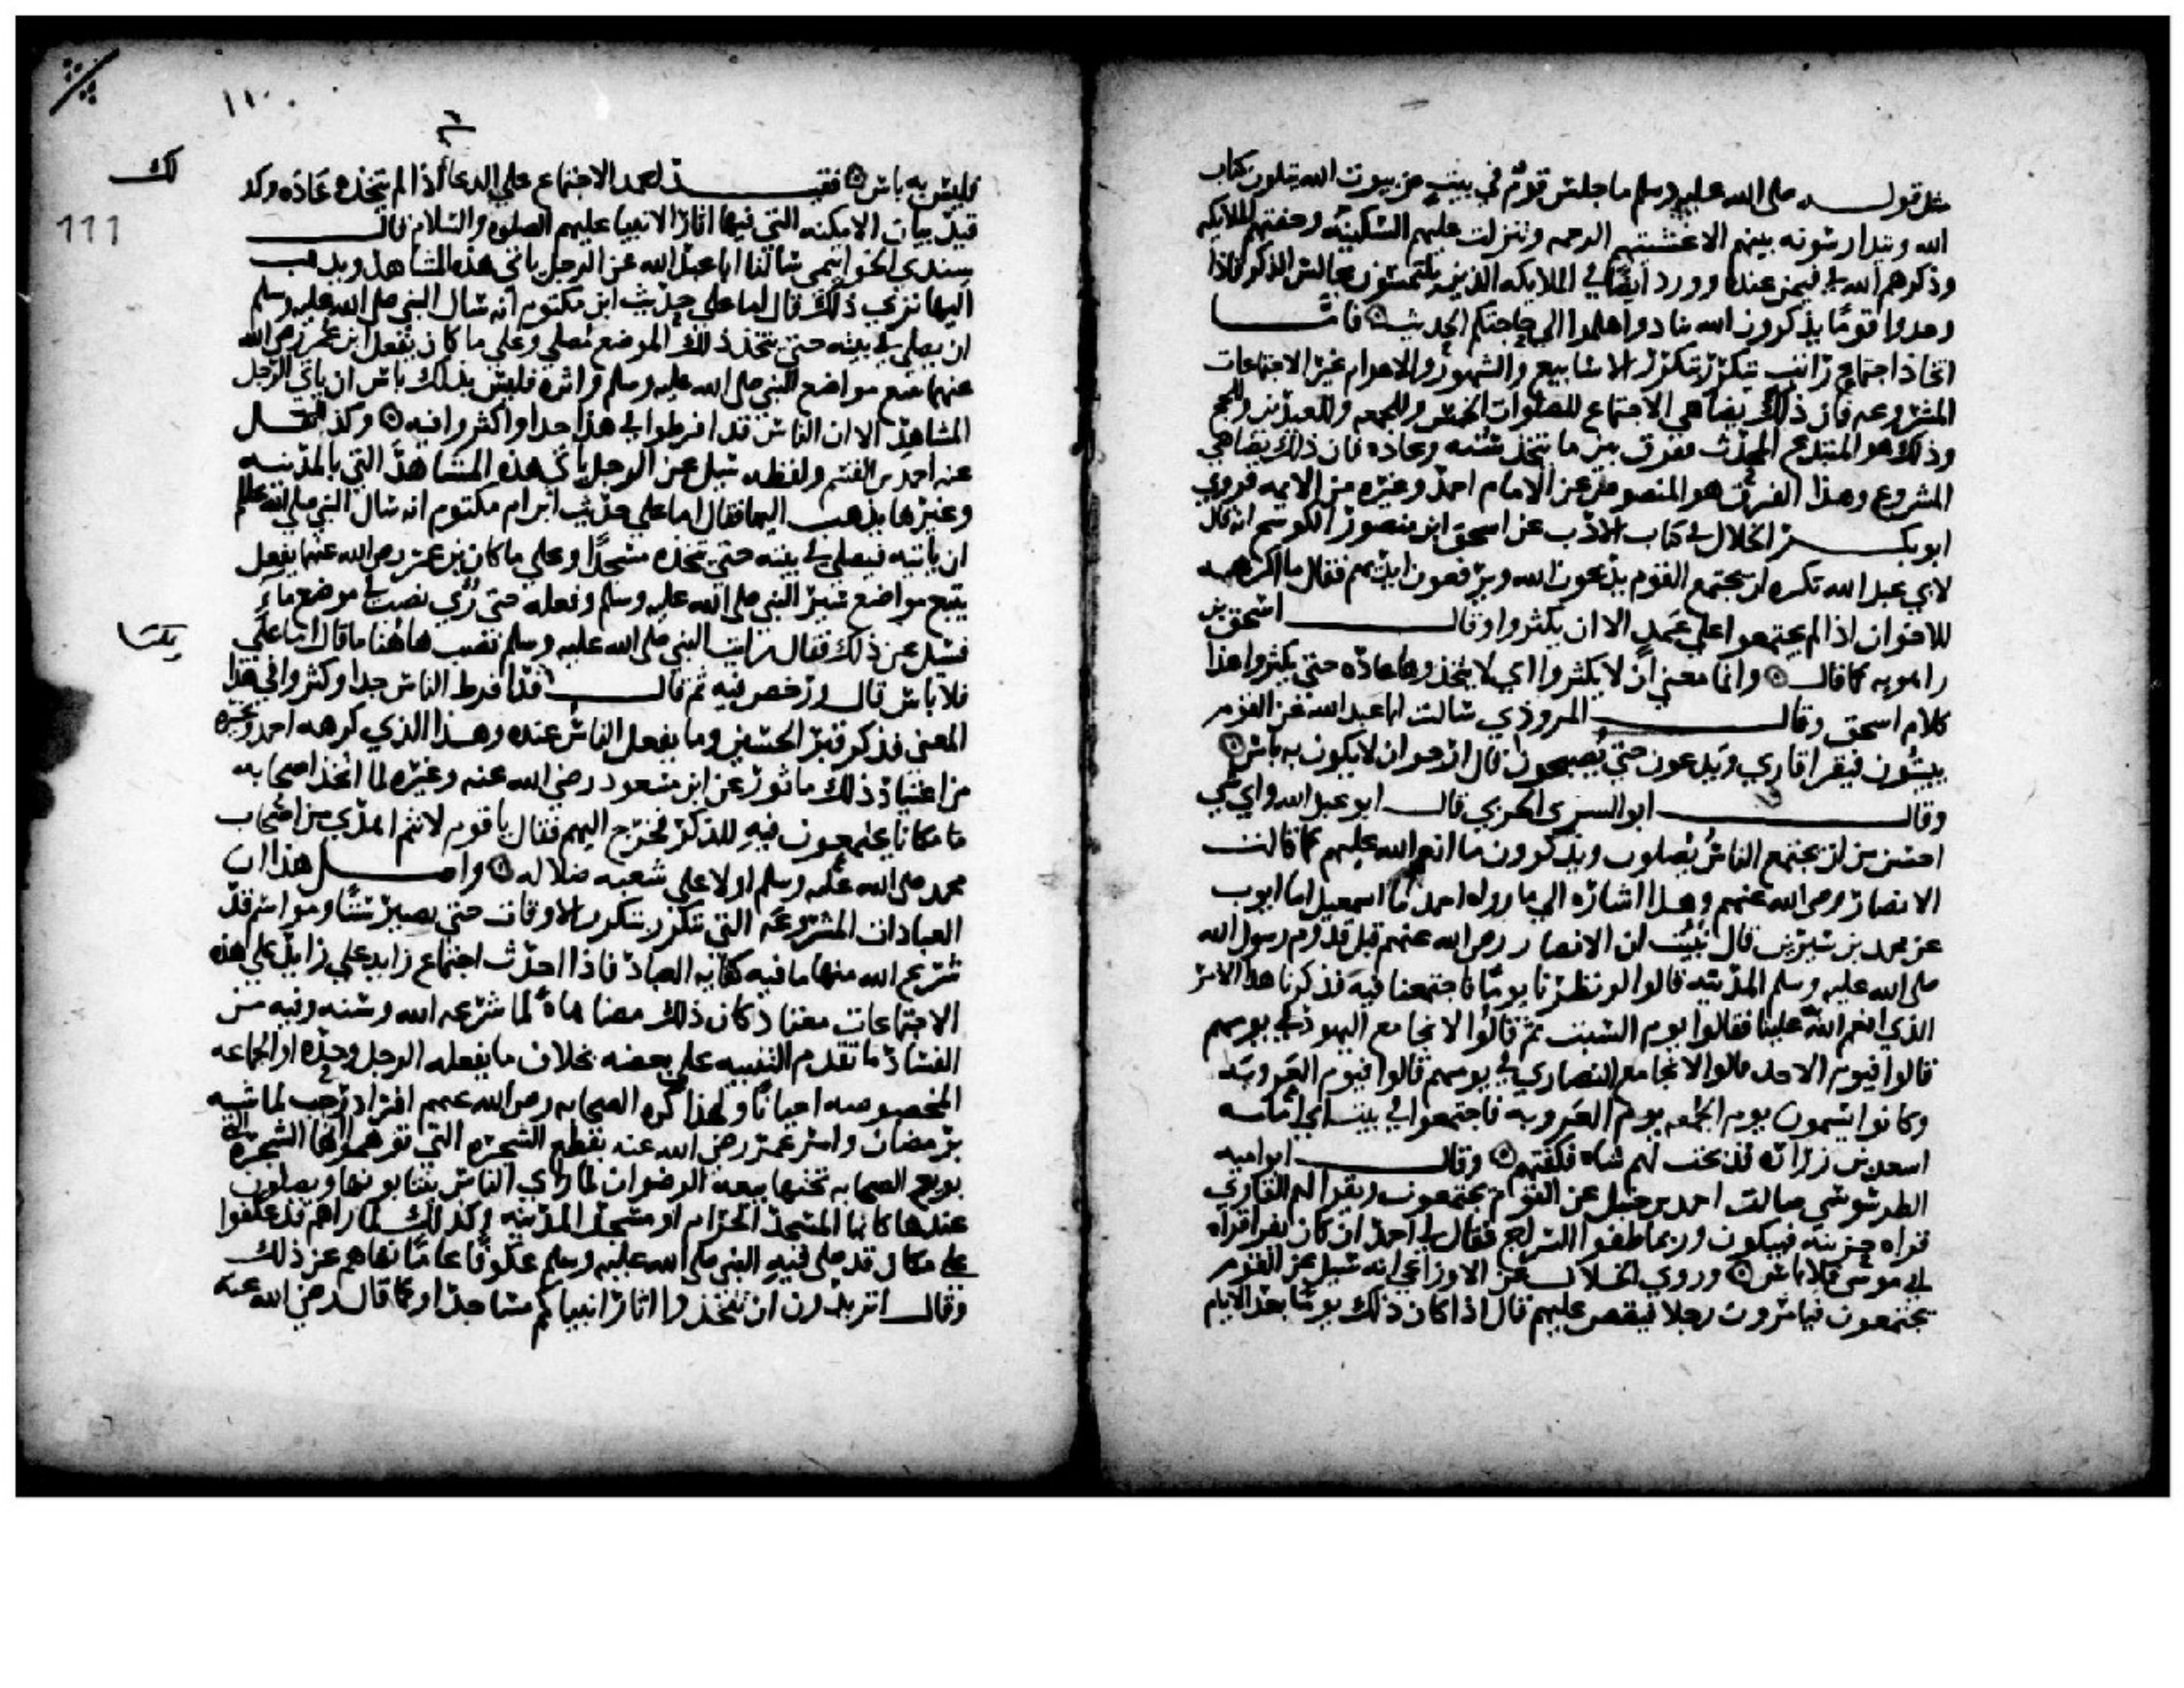 مثل قوله صلى الله عليه وسلم ما جلس قوم في بيت من بيوت الله يتلون كتاب
الله ويتدارسونه بينهم الا غشيتهم الرحمه وتنزلت عليهم السكينه وحفتهم الملايكه
وذكرهم الله في فيمن عنده وورد ايضا في الملايكه الذين يلتمسون مجالس الذكر فاذا
وجدوا قوما يذكرون الله تنادوا هلموا الي حاجتكم الحديث فاما
اتخاذ اجتماع راتب يتكرر بتكرر الاسابيع والشهور والاعوام غير الاجتماعات
المشروعه فان ذلك يضاهي الاجتماع للصلوات الخمس وللجمعه وللعيدين وللحج
وذلك هو المبتدع المحدث ففرق بين ما يتخذ سنه وعاده فان ذلك يضاهي
المشروع وهذا الفرق هو المنصوص عن الامام احمد وغيره من الايمه فروي
ابو بكر الخلال في كتاب الادب عن اسحق ابن منصور الكوسج انه قال
لابي عبد الله تكره ان يجتمع القوم يدعون الله ويرفعون ايديهم فقال ما اكرهه
للاخوان اذا لم يجتمعوا علي عمد الا ان يكثروا وقال اسحق بن
راهويه كما قال وانما معني ان لا يكثروا اي لا يتخذوها عاده حتي يكثروا هذا
كلام اسحق وقال المروذي سالت ابا عبد الله عن القوم
يبيتون فيقرا قاري ويدعون حتي يصبحون قال ارجو ان لا يكون به باس
وقال ابو السري الحربي قال ابو عبد الله واي شي
احسن من ان يجتمع الناس يصلون ويذكرون ما انعم الله عليهم كما قالت
الانصار رضي الله عنهم وهذا اشاره الي ما رواه احمد ما اسمعيل اما ايوب
عن محمد بن سيرين قال نبيت ان الانصار رضي الله عنهم قبل قدوم رسول الله
صلى الله عليه وسلم المدينه قالوا لو نظرنا يوما فاجتمعنا فيه فذكرنا هذا الامر
الذي انعم الله علينا فقالوا يوم السبت ثم قالوا لا نجامع اليهود في يومهم
قالوا فيوم الاحد قالوا لا نجامع النصاري في يومهم قالوا فيوم العروبه
وكانوا يسمون يوم الجمعه يوم العروبه فاجتمعوا في بيت ابي امامه
اسعد بن زراره فذبحت لهم شاه فكفتهم وقال ابو اميه
الطرسوسي سالت احمد بن حنبل عن القوم يجتمعون ويقرا لهم القاري
قراه حزينه فيبكون وربما طفوا السراج فقال لي احمد ان كان يقرا قراه
ابي موسي فلا باس وروي الخلال عن الاوزاعي انه سيل عن القوم
يجتمعون فيامرون رجلا فيقص عليهم قال اذا كان ذلك يوما بعد الايام
١١٠
111
فليس به باس فقيد احمد الاجتماع علي الدعا اذا لم يتخذه عاده وكذ
لك
قيد بيان الامكنه التي فيها اثار الانبيا عليهم الصلوه والسلام قال
سندي الخواتيمي سالنا ابا عبد الله عن الرجل ياتي هذه المشاهد ويذهب
اليها تري ذلك قال اما علي حديث ابن مكتوم انه سال النبي صلى الله عليه وسلم
ان يصلي في بيته حتي يتخذ ذلك الموضع مصلي وعلي ما كان يفعل ابن عمر رضي الله
عنهما يتبع مواضع النبي صلى الله عليه وسلم واثره فليس بذلك باس ان ياتي الرجل
المشاهد الا ان الناس قد افرطوا في هذا جدا واكثروا فيه وكذا نقل
عنه احمد بن القسم ولفظه سيل عن الرجل ياتي هذه المشاهد التي بالمدينه
وغيرها يذهب اليها فقال اما علي حديث ابن ام مكتوم انه سال النبي صلى الله عليه وسلم
ان ياتيه فيصلي في بيته حتي يتخذه مسجدا وعلي ما كان بن عمر رضي الله عنهما يفعل
يتبع مواضع سير النبي صلى الله عليه وسلم وفعله حتي رؤي يصب في موضع ماء
فسيل عن ذلك فقال رايت النبي صلى الله عليه وسلم يصب هاهنا ما قال اما علي
فلا باس قال ورخص فيه ثم قال قد افرط الناس جدا وكثروا في هذا
المعني فذكر قبر الحسين وما يفعل الناس عنده وهذا الذي كرهه احمد وغيره
من اعتياد ذلك ماثور عن ابن مسعود رضي الله عنه وغيره لما اتخذ اصحابه
مكانا يجتمعون فيه للذكر فخرج اليهم فقال يا قوم لانتم اهدي من اصحاب
محمد صلى الله عليه وسلم او لا علي شعبه ضلاله واصل هذا ان
العبادات المشروعه التي تتكرر بتكرر الاوقات حتي يصير سننا ومواسم قد
شرع الله منها ما فيه كفايه العباد فاذا احدث اجتماع زايد علي زايد علي هذه
الاجتماعات معتاد كان ذلك مضاهاه لما شرعه الله وسنه وفيه من
الفساد ما تقدم التنبيه علي بعضه بخلاف ما يفعله الرجل وحده او الجماعه
المخصوصه احيانا ولهذا كره الصحابه رضي الله عنهم افراد رجب لما شبه
برمضان وامر عمر رضي الله عنه بقطع الشجره التي توهموا انها الشجره التي
بويع الصحابه تحتها بيعه الرضوان لما راي الناس ينتابونها ويصلون
عندها كانها المسجد الحرام او مسجد المدينه وكذلك لما راهم قد عكفوا
علي مكان قد صلى فيه النبي صلى الله عليه وسلم عكوفا عاما نهاهم عن ذلك
وقال اتريدون ان تتخذوا اثار انبياكم مساجد او كما قال رضي الله عنه